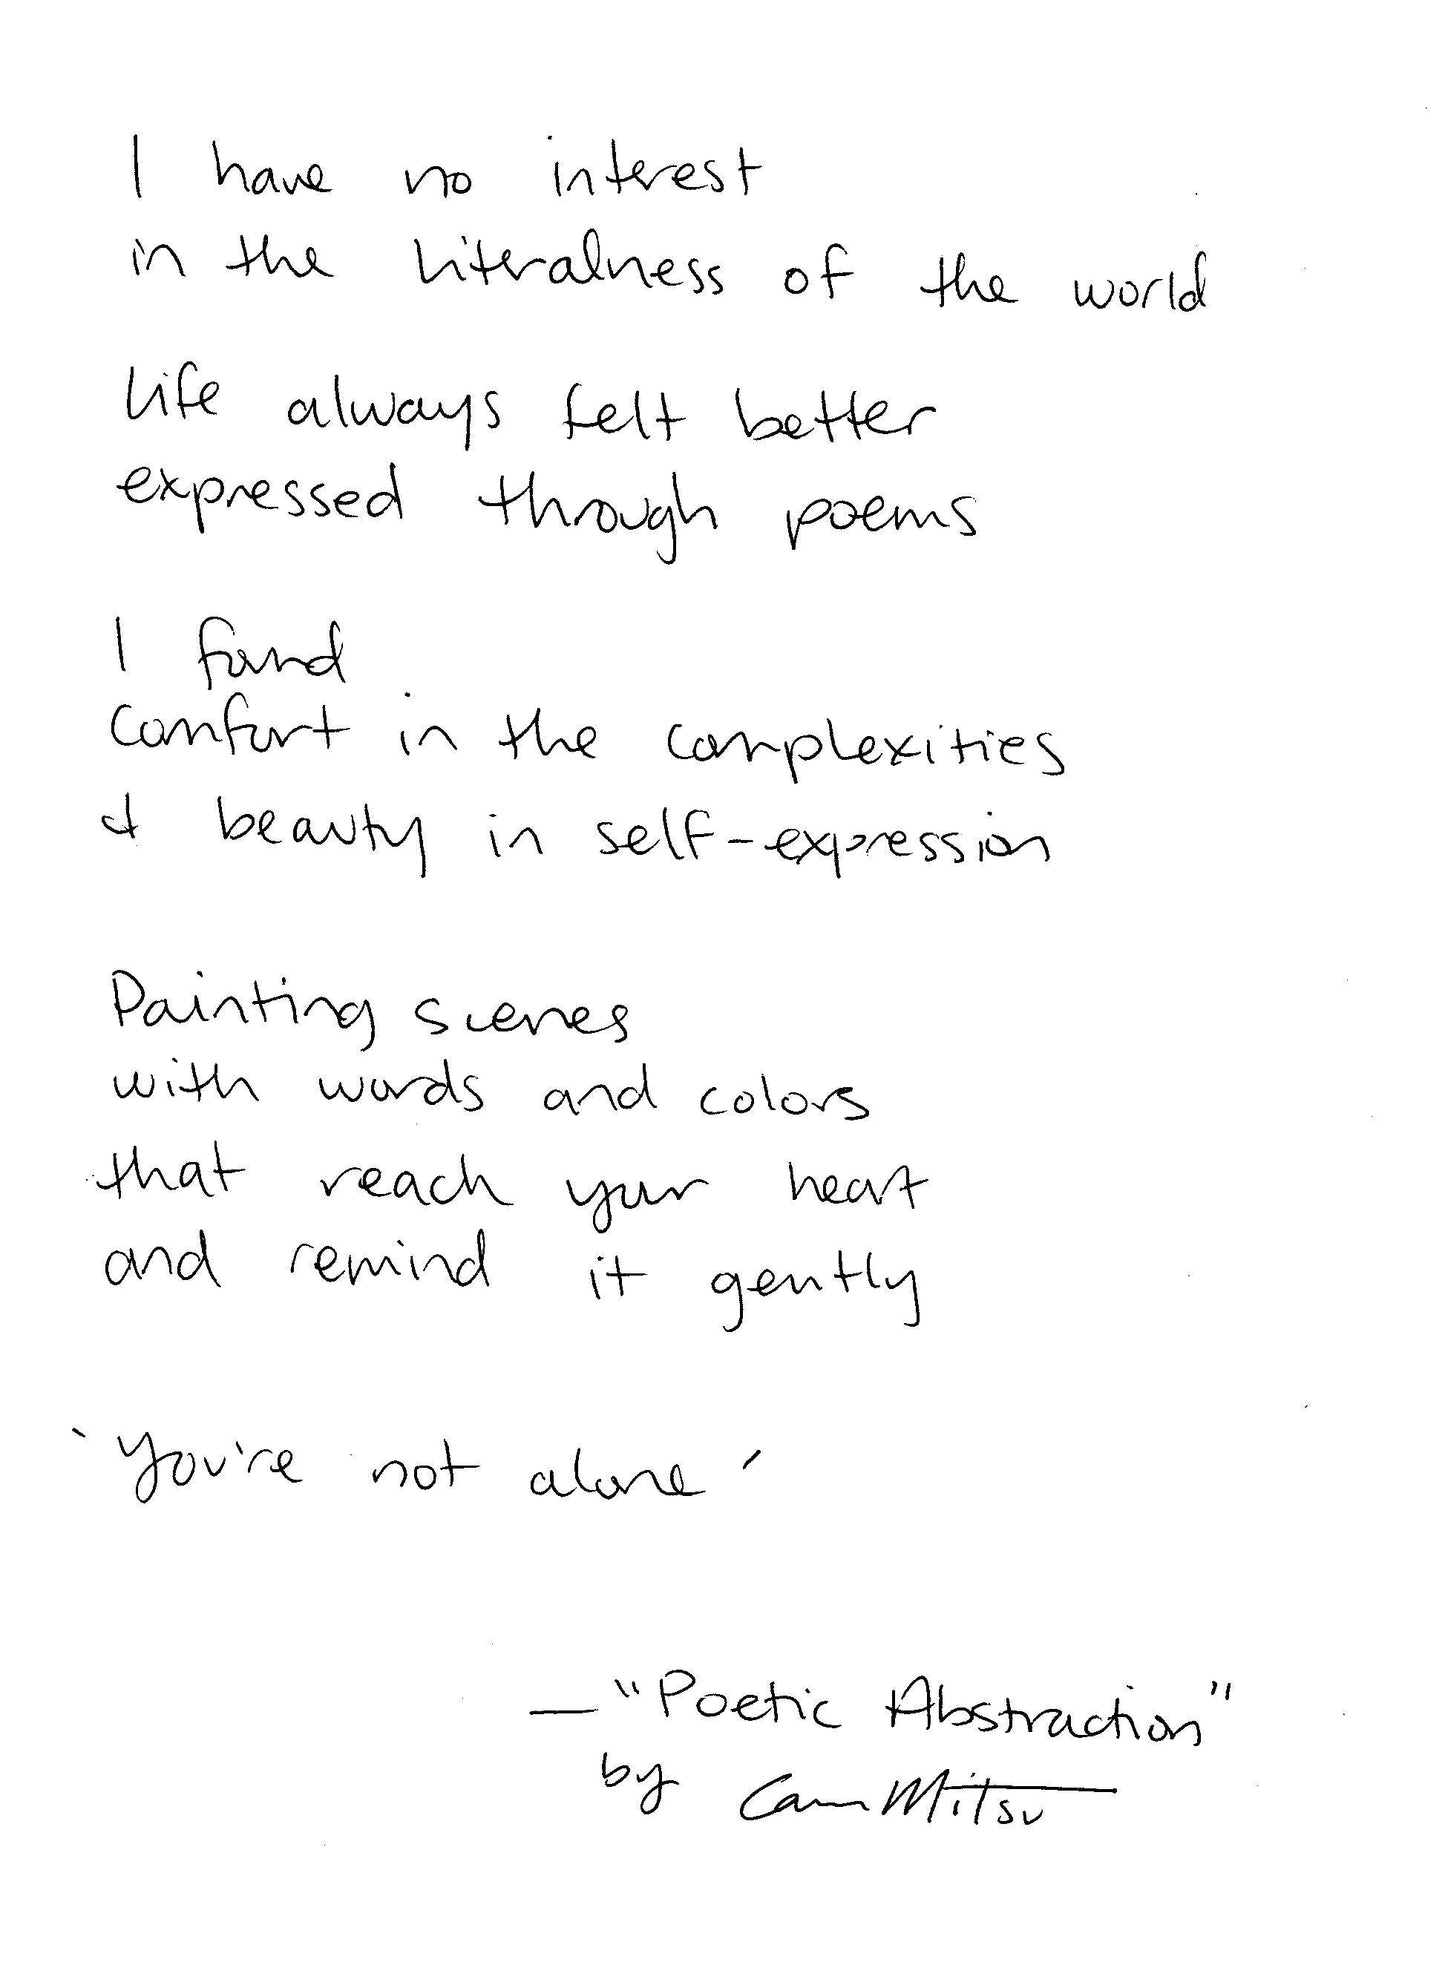 I have no interest
in the literalness of the world
Life always felt better
expressed through poems
I found
comfort in the complexities
& beauty in self-expression
Painting scenes
with words and colors
that reach your heart
and remind it gently
'You're not alone'
— "Poetic Abstraction"
by Cam Mitsu